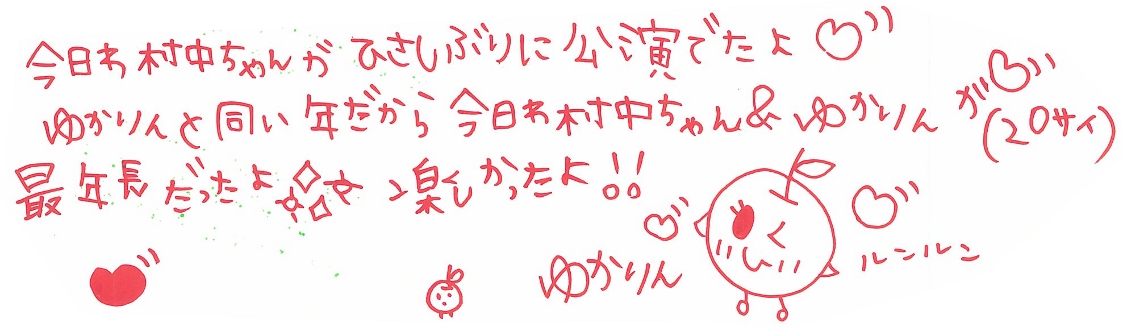 今日わ村中ちゃんがひさしぶりに公演でたよ♡
ゆかりんと同い年だから今日わ村中ちゃん&ゆかりんが♡
(20サイ)
最年長だったよ 楽しかったよ!!
ゆかりん
ルンルン